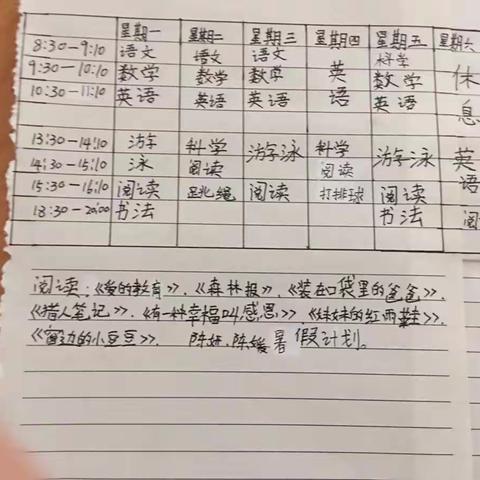 星期一 星期二 星期三 星期四 星期五 星期六
8:30—9:10 语文 语文 语文 科学
9:30—10:10 数学 数学 数学 英 数学 休
10:30—11:10 英语 英语 英语 语 英语 息
13:30—14:10 游 科学 游泳 科学 游泳 英
14:30—15:10 泳 阅读 阅读 语
15:30—16:10 阅读 跳绳 阅读 打排球 阅读
18:30—20:00 书法 书法 阅
阅读:《爱的教育》、《森林报》、《装在口袋里的爸爸》、
《猎人笔记》、《有一种幸福叫感恩》、《妹妹的红雨鞋》、
《窗边的小豆豆》。 陈妍、陈媛暑假计划。